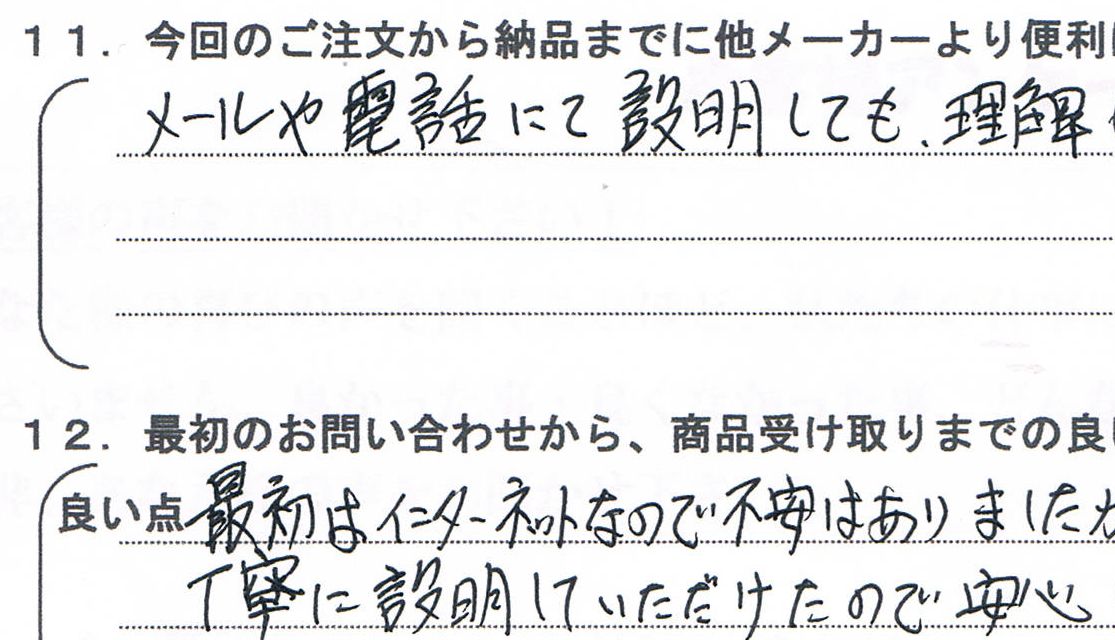 11．今回のご注文から納品までに他メーカーより便利
メールや電話にて説明しても、理解
12．最初のお問い合わせから、商品受け取りまでの良
良い点 最初はインターネットなので不安はありました
丁寧に説明していただけたので安心